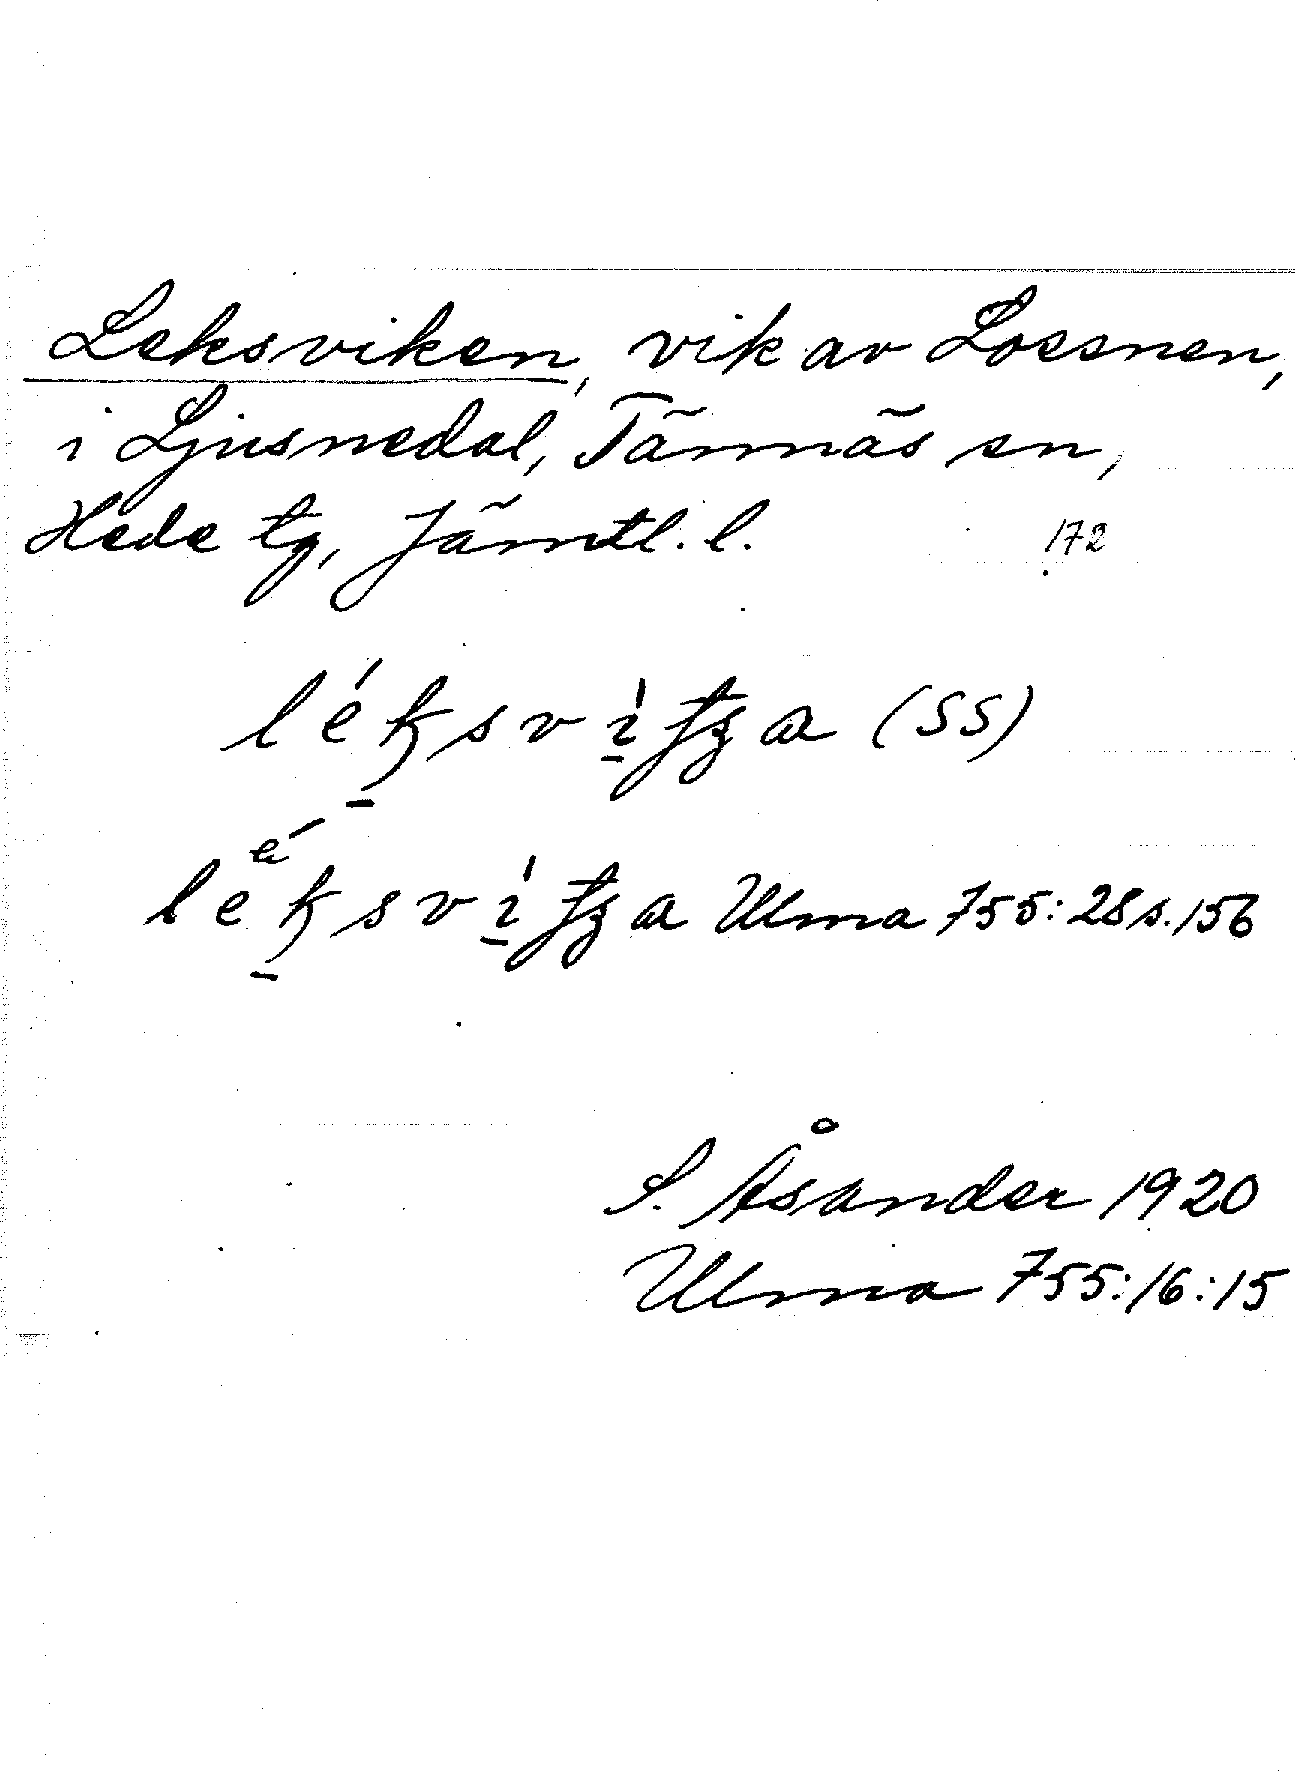 Leksviken, vik av Lossnen,
i Ljusnedal, Tännäs sn,
Hede tg, Jämtl. l.
172
(SS)
Ulma 755:28 s.156
S. Åsander 1920
Ulma 755:16:15